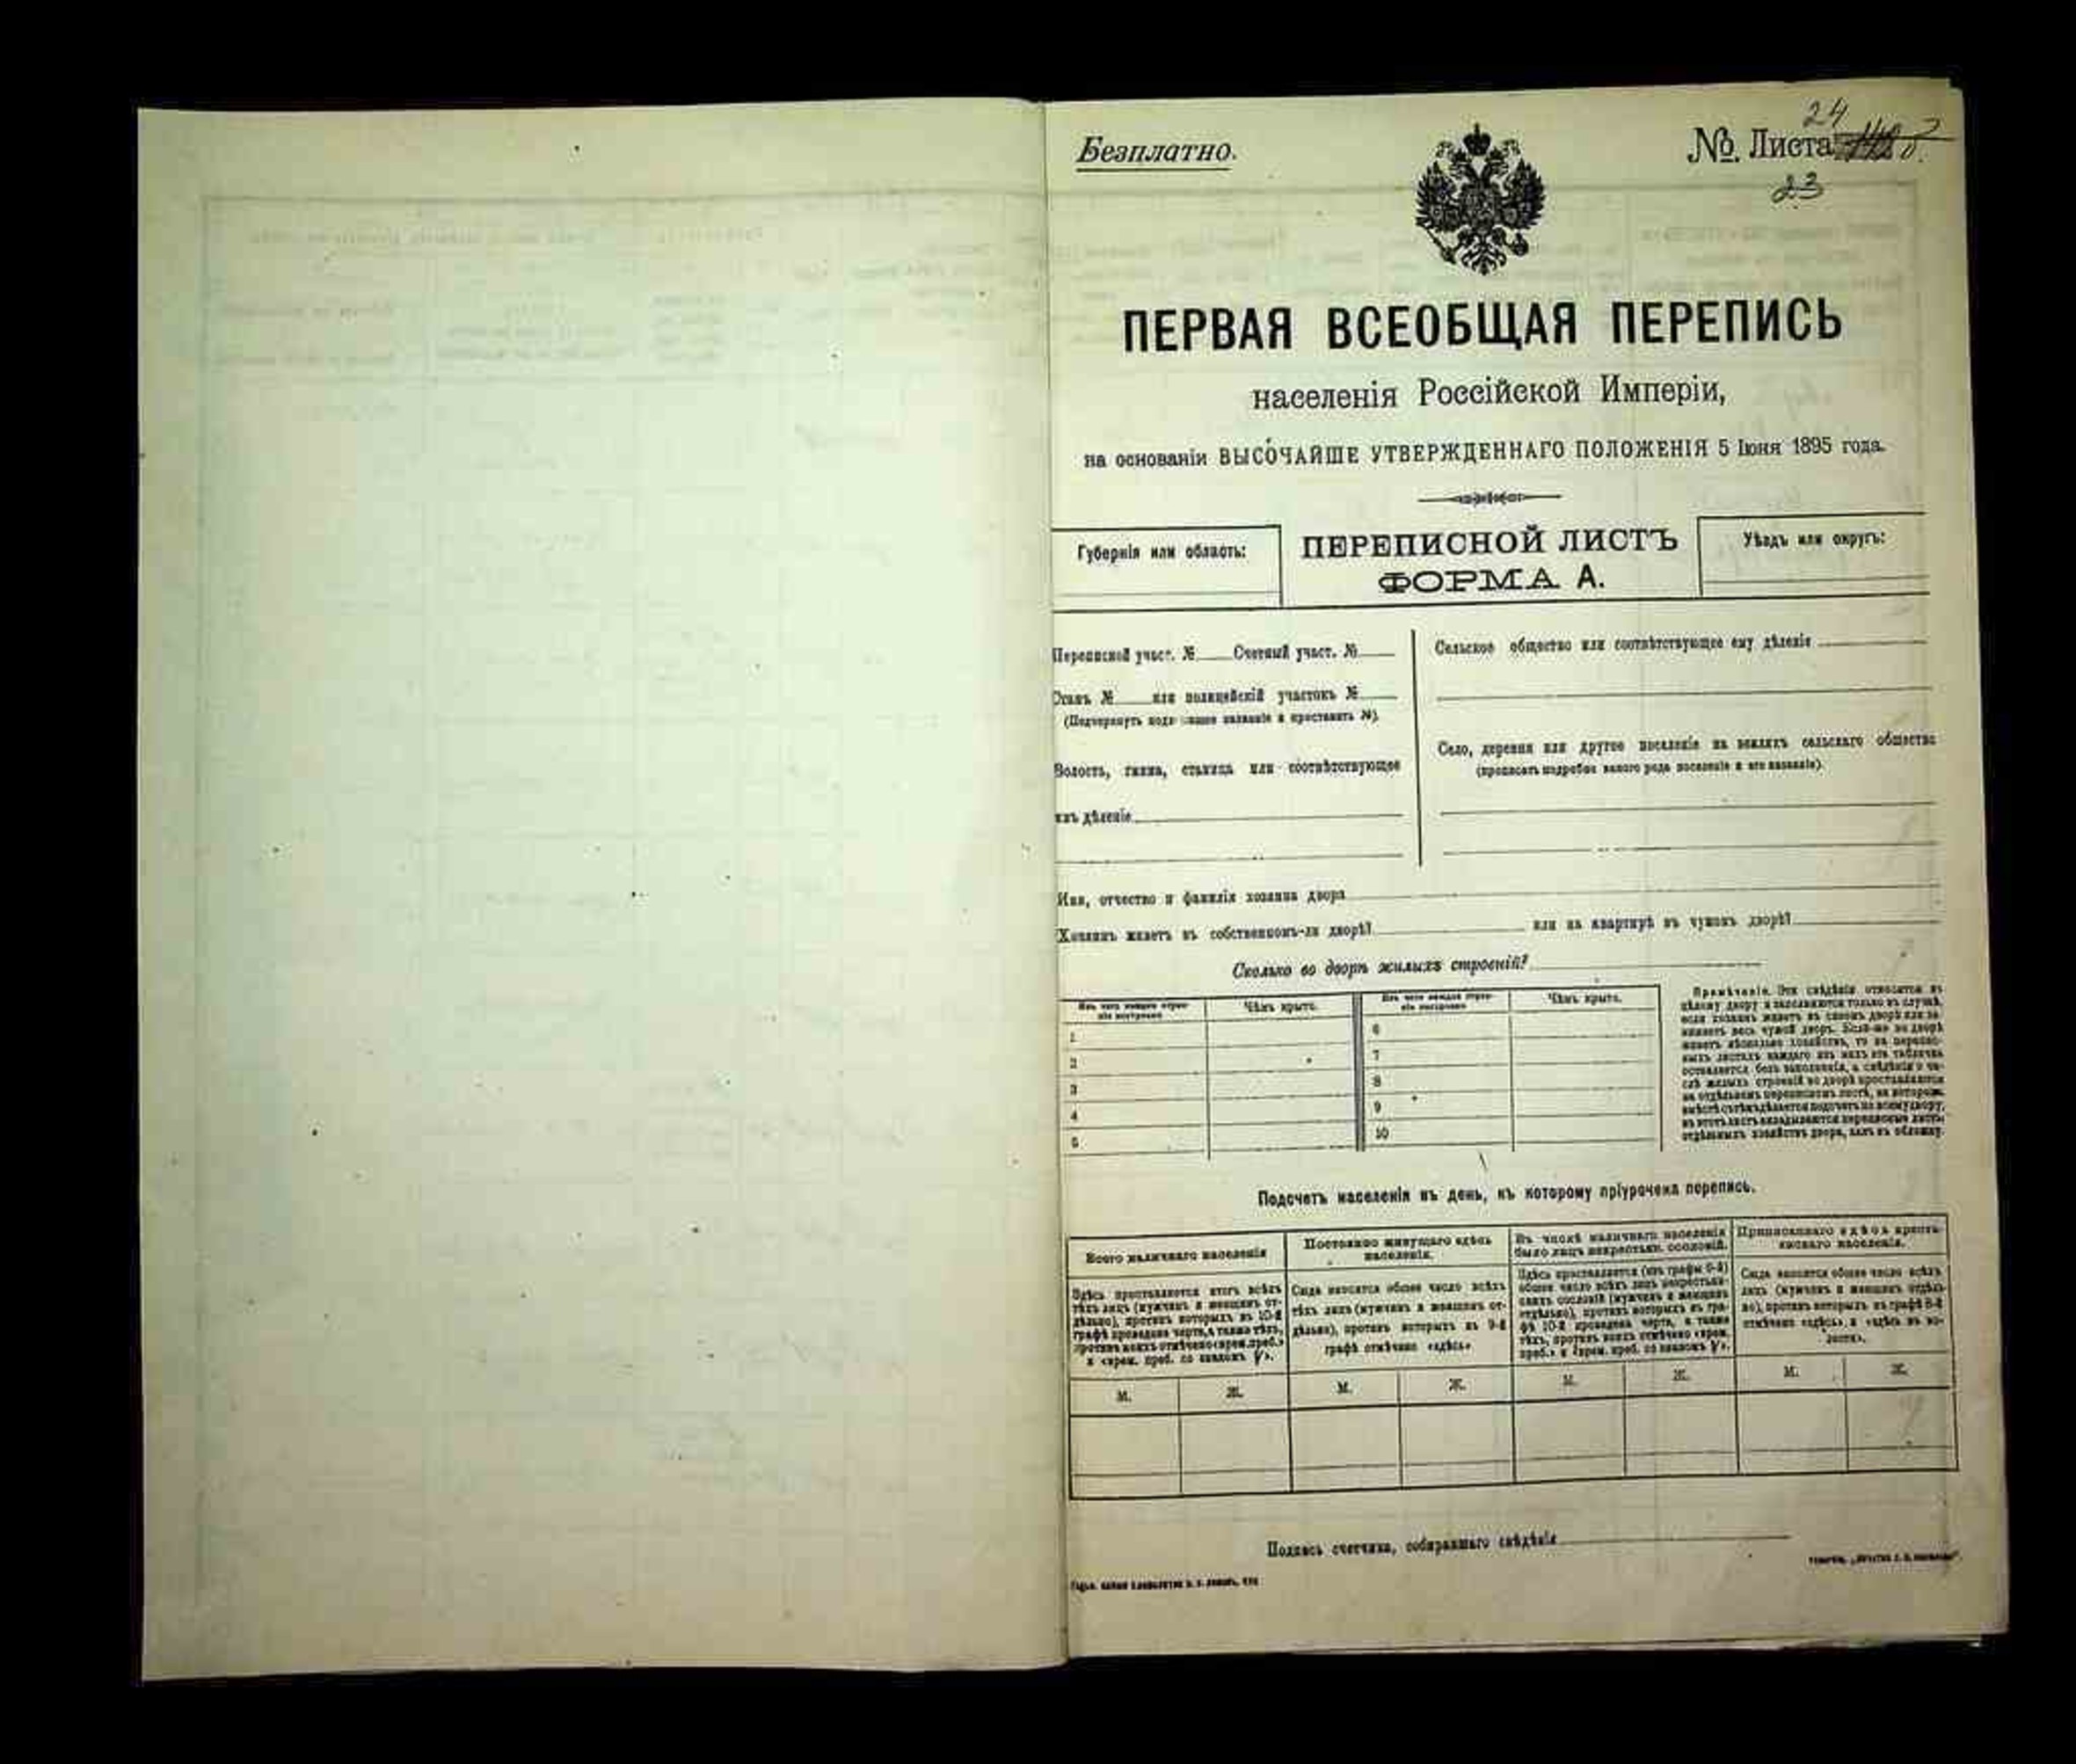 Безплатно.
24
№. Листа
23
ПЕРВАЯ ВСЕОБЩАЯ ПЕРЕПИСЬ
населенія Россійской Имперіи,
на основаніи ВЫСОЧАЙШЕ УТВЕРЖДЕННАГО ПОЛОЖЕНІЯ 5 Іюня 1895 года.
Губернія или область:
ПЕРЕПИСНОЙ ЛИСТЪ
ФОРМА А.
Уѣздъ или округъ:
Переписной участ. № Счетный участ. №
Станъ № или полицейскій участокъ №
(Подчеркнуть название и проставить №).
Волость, гмина, станица или соотвѣтствующее
имъ дѣленіе
Сельское общество или соотвѣтствующее ему дѣленіе
Село, деревня или другое поселеніе на земляхъ сельскаго общества
(прописать подробно какого рода поселеніе и его названіе).
Имя, отчество и фамилія хозяина двора
Хозяинъ живетъ въ собственномъ-ли дворѣ? или на квартирѣ въ чужомъ дворѣ?
Сколько во дворѣ жилыхъ строеній?
Изъ чего каждое строеніе построено
Чѣмъ крыто.
Изъ чего каждое строеніе построено
Чѣмъ крыто.
1 6
2 7
3 8
4 9
5 10
Примѣчаніе. Эти свѣдѣнія относятся къ
цѣлому двору и заполняются только въ случаѣ,
если хозяинъ живетъ въ своемъ дворѣ или за-
нимаетъ весь чужой дворъ. Если-же во дворѣ
живетъ нѣсколько хозяйствъ, то на перепис-
ныхъ листахъ каждаго изъ нихъ эта табличка
оставляется безъ заполненія, а свѣдѣнія о чи-
слѣ жилыхъ строеній во дворѣ проставляются
на отдѣльномъ переписномъ листѣ, на которомъ
вмѣстѣ съ тѣмъ дѣлается подсчетъ по всему двору;
въ этотъ листъ вкладываются переписные листы
отдѣльныхъ хозяйствъ двора, какъ въ обложку.
Подсчетъ населенія въ день, къ которому пріурочена перепись.
Всего наличнаго населенія
Здѣсь проставляется итогъ всѣхъ
тѣхъ лицъ (мужчинъ и женщинъ от-
дѣльно), противъ которыхъ въ 10-й
графѣ проведена черта, а также тѣхъ,
противъ коихъ отмѣчено «врем. преб.»
и «врем. преб. со знакомъ V».
Постоянно живущаго здѣсь
населенія.
Сюда вносится общее число всѣхъ
тѣхъ лицъ (мужчинъ и женщинъ от-
дѣльно), противъ которыхъ въ 9-й
графѣ отмѣчено «здѣсь»
Въ числѣ наличнаго населенія
было лицъ некрестьян. сословій.
Здѣсь проставляется (изъ графы 6-й)
общее число всѣхъ лицъ некрестьян-
скихъ сословій (мужчинъ и женщинъ
отдѣльно), противъ которыхъ въ гра-
фѣ 10-й проведена черта, а также
тѣхъ, противъ коихъ отмѣчено «врем.
преб.» и «врем. преб. со знакомъ V».
Приписаннаго здѣсь кресть-
янскаго населенія.
Сюда вносится общее число всѣхъ
лицъ (мужчинъ и женщинъ отдѣль-
но), противъ которыхъ въ графѣ 8-й
отмѣчено «здѣсь» и «здѣсь въ во-
лости».
М. Ж. М. Ж. М. Ж. М. Ж.
Подпись счетчика, собиравшаго свѣдѣнія